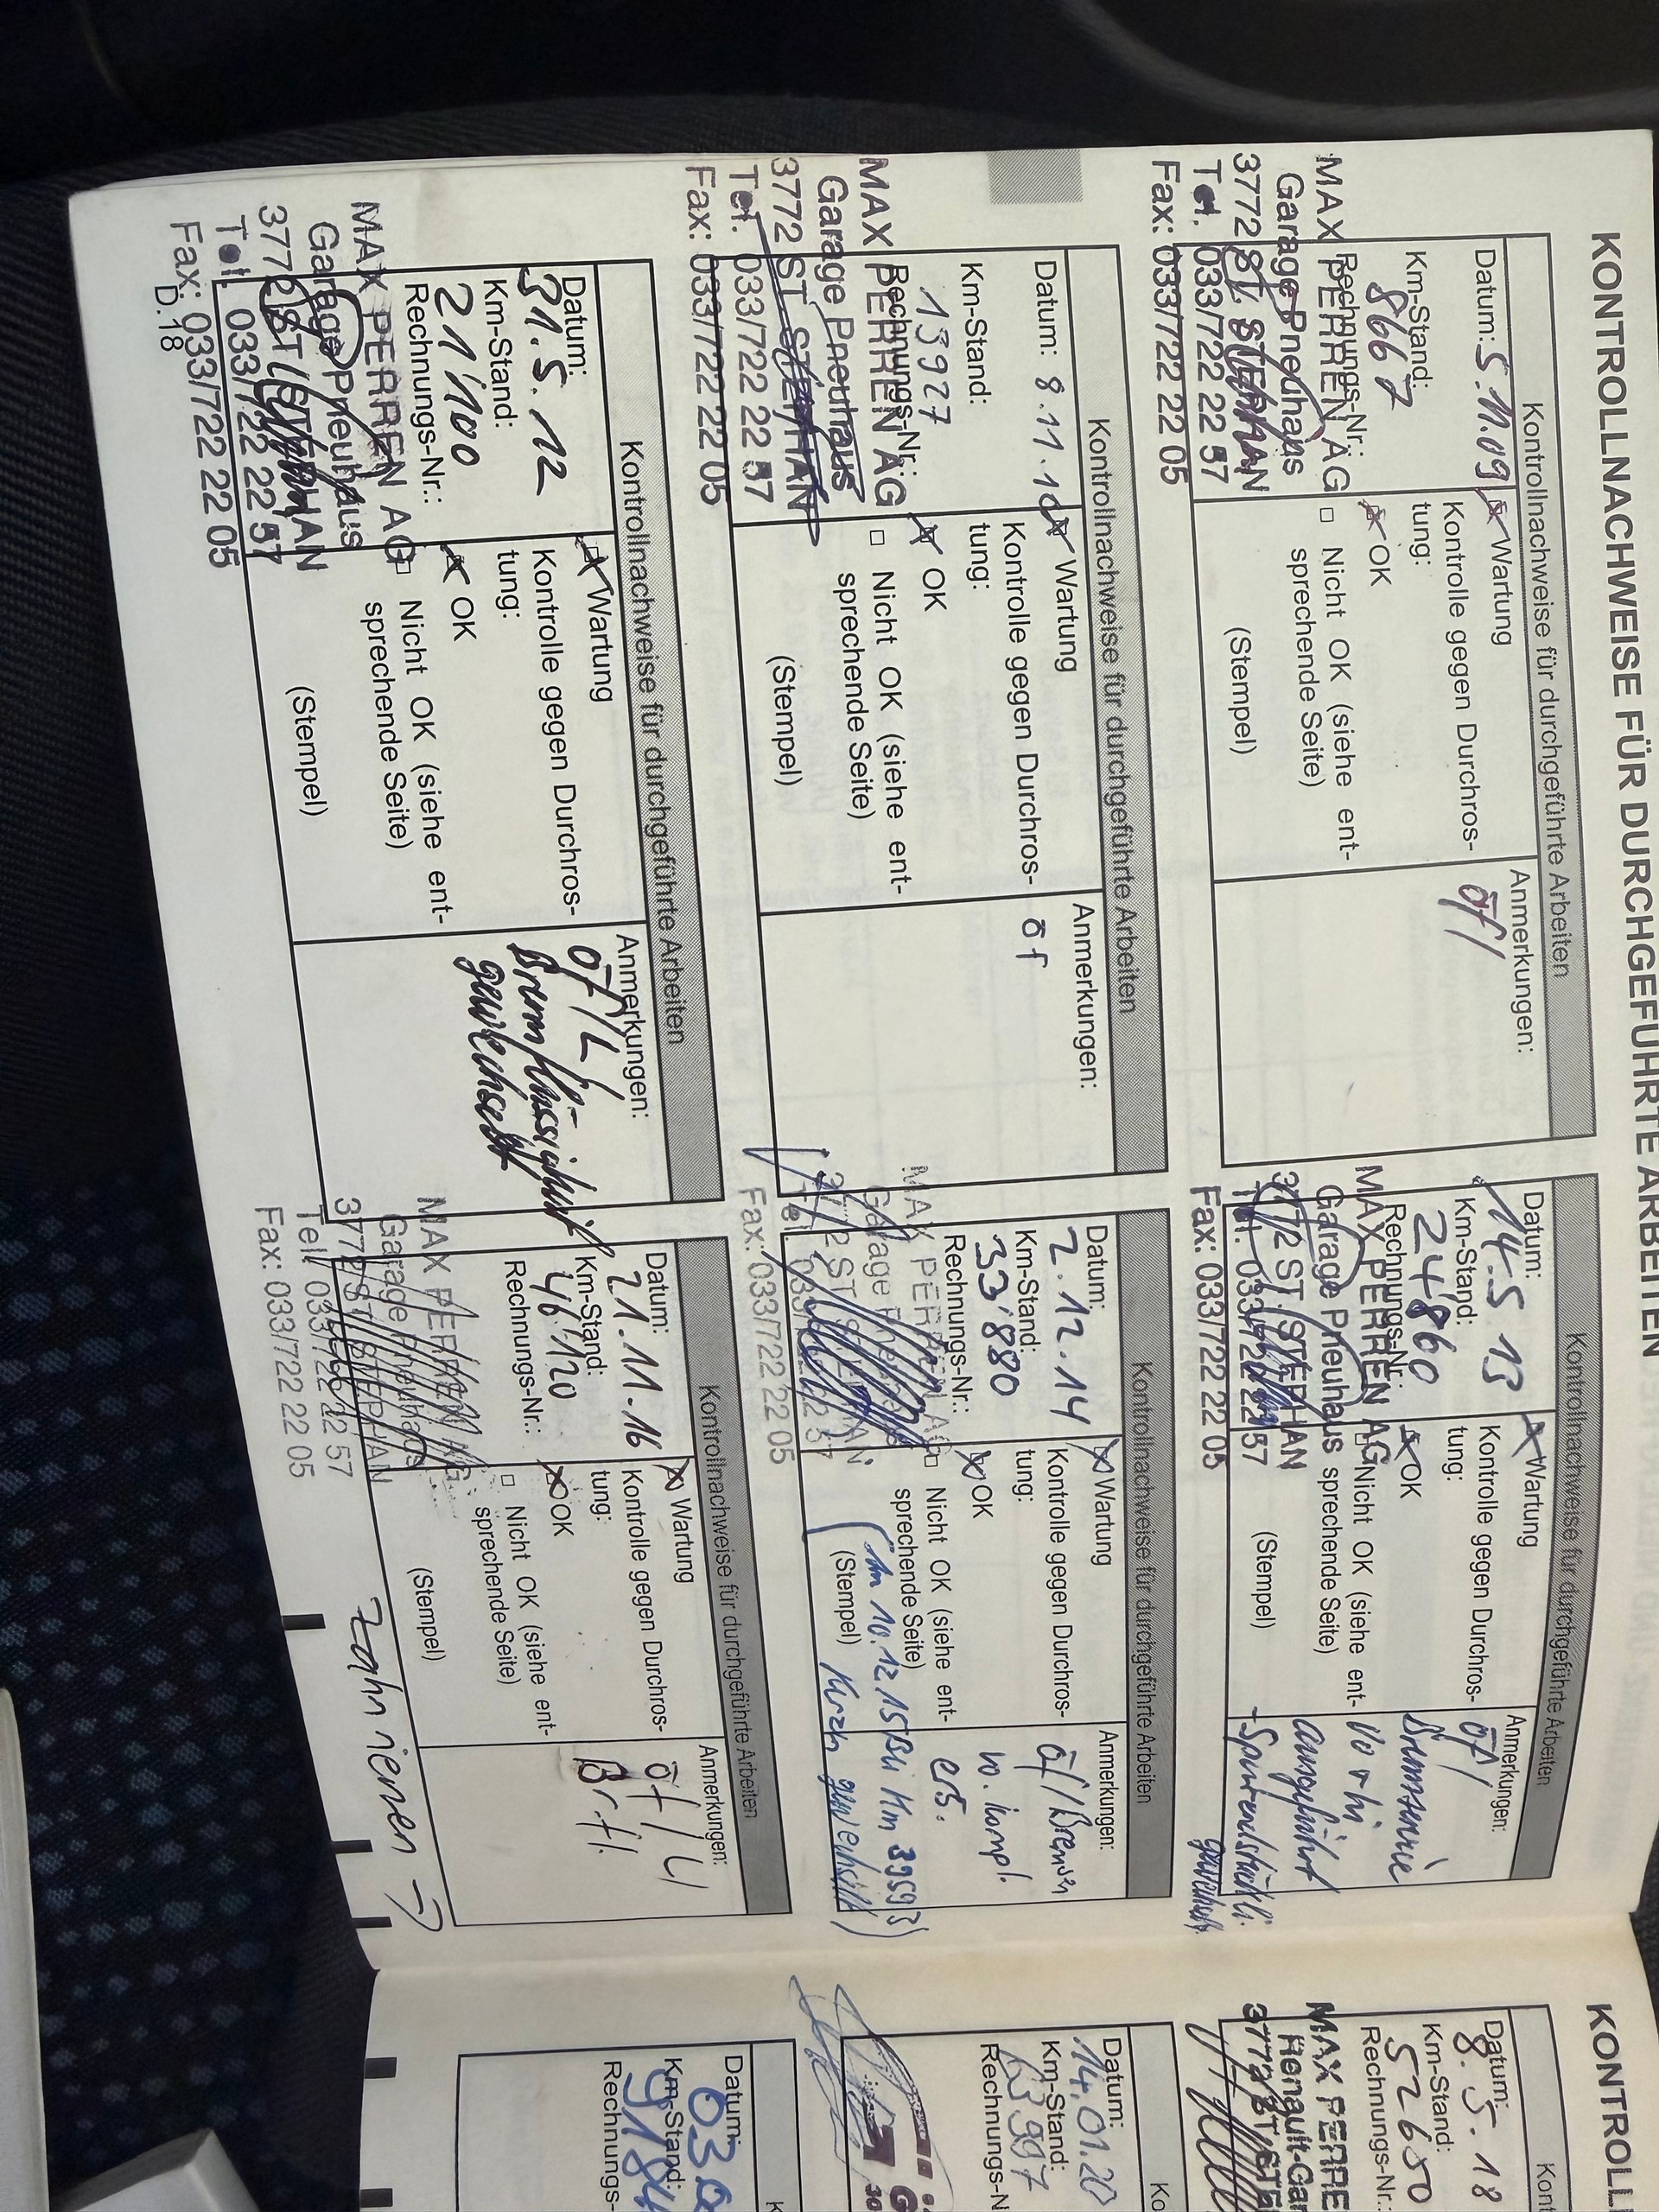 KONTROLLNACHWEISE FÜR DURCHGEFÜHRTE ARBEITEN
Kontrollnachweise für durchgeführte Arbeiten
Datum: 5.11.09
Km-Stand:
8667
Rechnungs-Nr.:
MAX PERREN AG
Garage Pneuhaus
3772 ST. STEPHAN
Tel. 033/722 22 57
Fax: 033/722 22 05
Wartung
Kontrolle gegen Durchros-
tung:
OK
Nicht OK (siehe ent-
sprechende Seite)
(Stempel)
Anmerkungen:
öf/
Kontrollnachweise für durchgeführte Arbeiten
Datum: 8.11.10
Km-Stand:
13927
Rechnungs-Nr.:
MAX PERREN AG
Garage Pneuhaus
3772 ST. STEPHAN
Tel. 033/722 22 57
Fax: 033/722 22 05
Wartung
Kontrolle gegen Durchros-
tung:
OK
Nicht OK (siehe ent-
sprechende Seite)
(Stempel)
Anmerkungen:
öf
Kontrollnachweise für durchgeführte Arbeiten
Datum:
31.5.12
Km-Stand:
21'100
Rechnungs-Nr.:
MAX PERREN AG
Garage Pneuhaus
3772 ST. STEPHAN
Tel. 033/722 22 57
Fax: 033/722 22 05
Wartung
Kontrolle gegen Durchros-
tung:
OK
Nicht OK (siehe ent-
sprechende Seite)
(Stempel)
Anmerkungen:
öf/L/
Bremflüssigkeit
gewechselt
D.18
Kontrollnachweise für durchgeführte Arbeiten
Datum:
14.5 13
Km-Stand:
24'860
Rechnungs-Nr.:
MAX PERREN AG
Garage Pneuhaus
3772 ST. STEPHAN
Tel. 033/722 22 57
Fax: 033/722 22 05
Wartung
Kontrolle gegen Durchros-
tung:
OK
Nicht OK (siehe ent-
sprechende Seite)
(Stempel)
Anmerkungen:
öf/
Kontrollnachweise für durchgeführte Arbeiten
Datum:
2.12.14
Km-Stand:
33'880
Rechnungs-Nr.:
MAX PERREN AG
Garage Pneuhaus
3772 ST. STEPHAN
Tel. 033/722 22 57
Fax: 033/722 22 05
Wartung
Kontrolle gegen Durchros-
tung:
OK
Nicht OK (siehe ent-
sprechende Seite)
(Stempel)
Anmerkungen:
öf/Bremsen
vo. kompl.
ers.
(Am 10.12.15 Bei Km 39593
gewechselt)
Kontrollnachweise für durchgeführte Arbeiten
Datum:
21.11.16
Km-Stand:
46'120
Rechnungs-Nr.:
MAX PERREN AG
Garage Pneuhaus
3772 ST. STEPHAN
Tel. 033/722 22 57
Fax: 033/722 22 05
Wartung
Kontrolle gegen Durchros-
tung:
OK
Nicht OK (siehe ent-
sprechende Seite)
(Stempel)
Anmerkungen:
öf/L/
Br.fl.
Zahnriemen →
KONTROLL
Kont
Datum:
8.5.18
Km-Stand:
52650
Rechnungs-Nr.:
MAX PERRE
Renault-Gar
3772 ST. STE
Ko
Datum:
14.01.20
Km-Stand:
63997
Rechnungs-N
K
Datum:
Km-Stand:
Rechnungs-